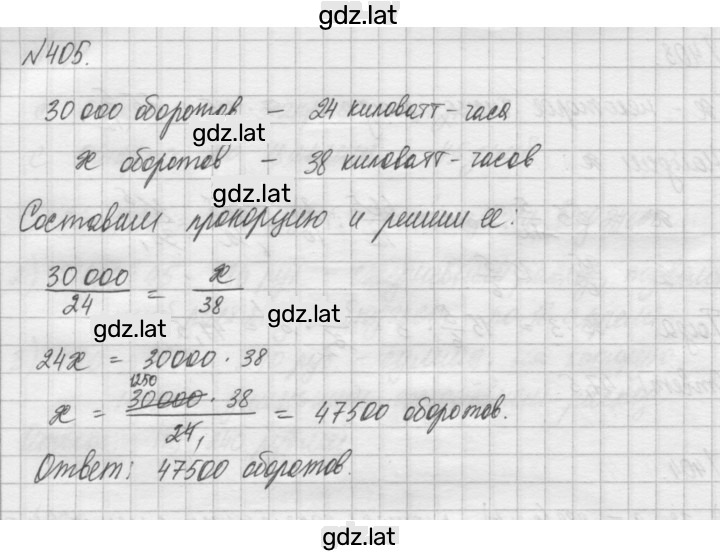 gdz.lat
№405.
30 000 оборотов — 24 киловатт-часа
gdz.lat
x оборотов — 38 киловатт-часов
gdz.lat
Составим пропорцию и решим ее:
30 000 / 24 = x / 38
gdz.lat gdz.lat
24x = 30000 · 38
1250
x = 30000 · 38 / 24, = 47500 оборотов.
gdz.lat
Ответ: 47500 оборотов.
gdz.lat